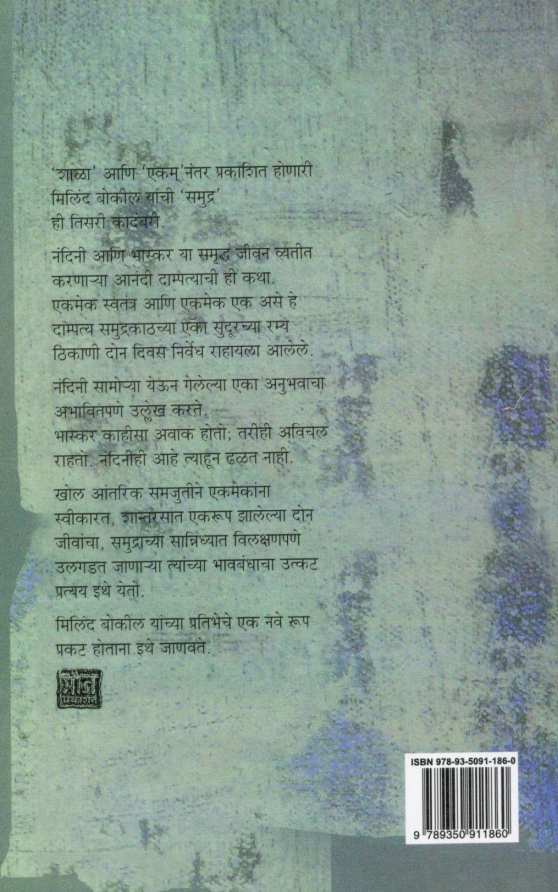 'शाळा' आणि 'एकम्'नंतर प्रकाशित होणारी
मिलिंद बोकील यांची 'समुद्र'
ही तिसरी कादंबरी.
नंदिनी आणि भास्कर या समृद्ध जीवन व्यतीत
करणाऱ्या आनंदी दाम्पत्याची ही कथा.
एकमेक स्वतंत्र आणि एकमेक एक असे हे
दांपत्य समुद्रकाठच्या एका सुंदूरच्या रम्य
ठिकाणी दोन दिवस निर्वेध राहायला आलेले.
नंदिनी सामोऱ्या येऊन गेलेल्या एका अनुभवाचा
अभावितपणे उल्लेख करते.
भास्कर काहीसा अवाक होतो; तरीही अविचल
राहतो. नंदिनीही आहे त्याहून ढळत नाही.
खोल आंतरिक समजुतीने एकमेकांना
स्वीकारत, शान्तरसात एकरूप झालेल्या दोन
जीवांचा, समुद्राच्या सान्निध्यात विलक्षणपणे
उलगडत जाणाऱ्या त्यांच्या भावबंधाचा उत्कट
प्रत्यय इथे येतो.
मिलिंद बोकील यांच्या प्रतिभेचे एक नवे रूप
प्रकट होताना इथे जाणवते.
मौज
प्रकाशन
ISBN 978-93-5091-186-0
9 789350 911860